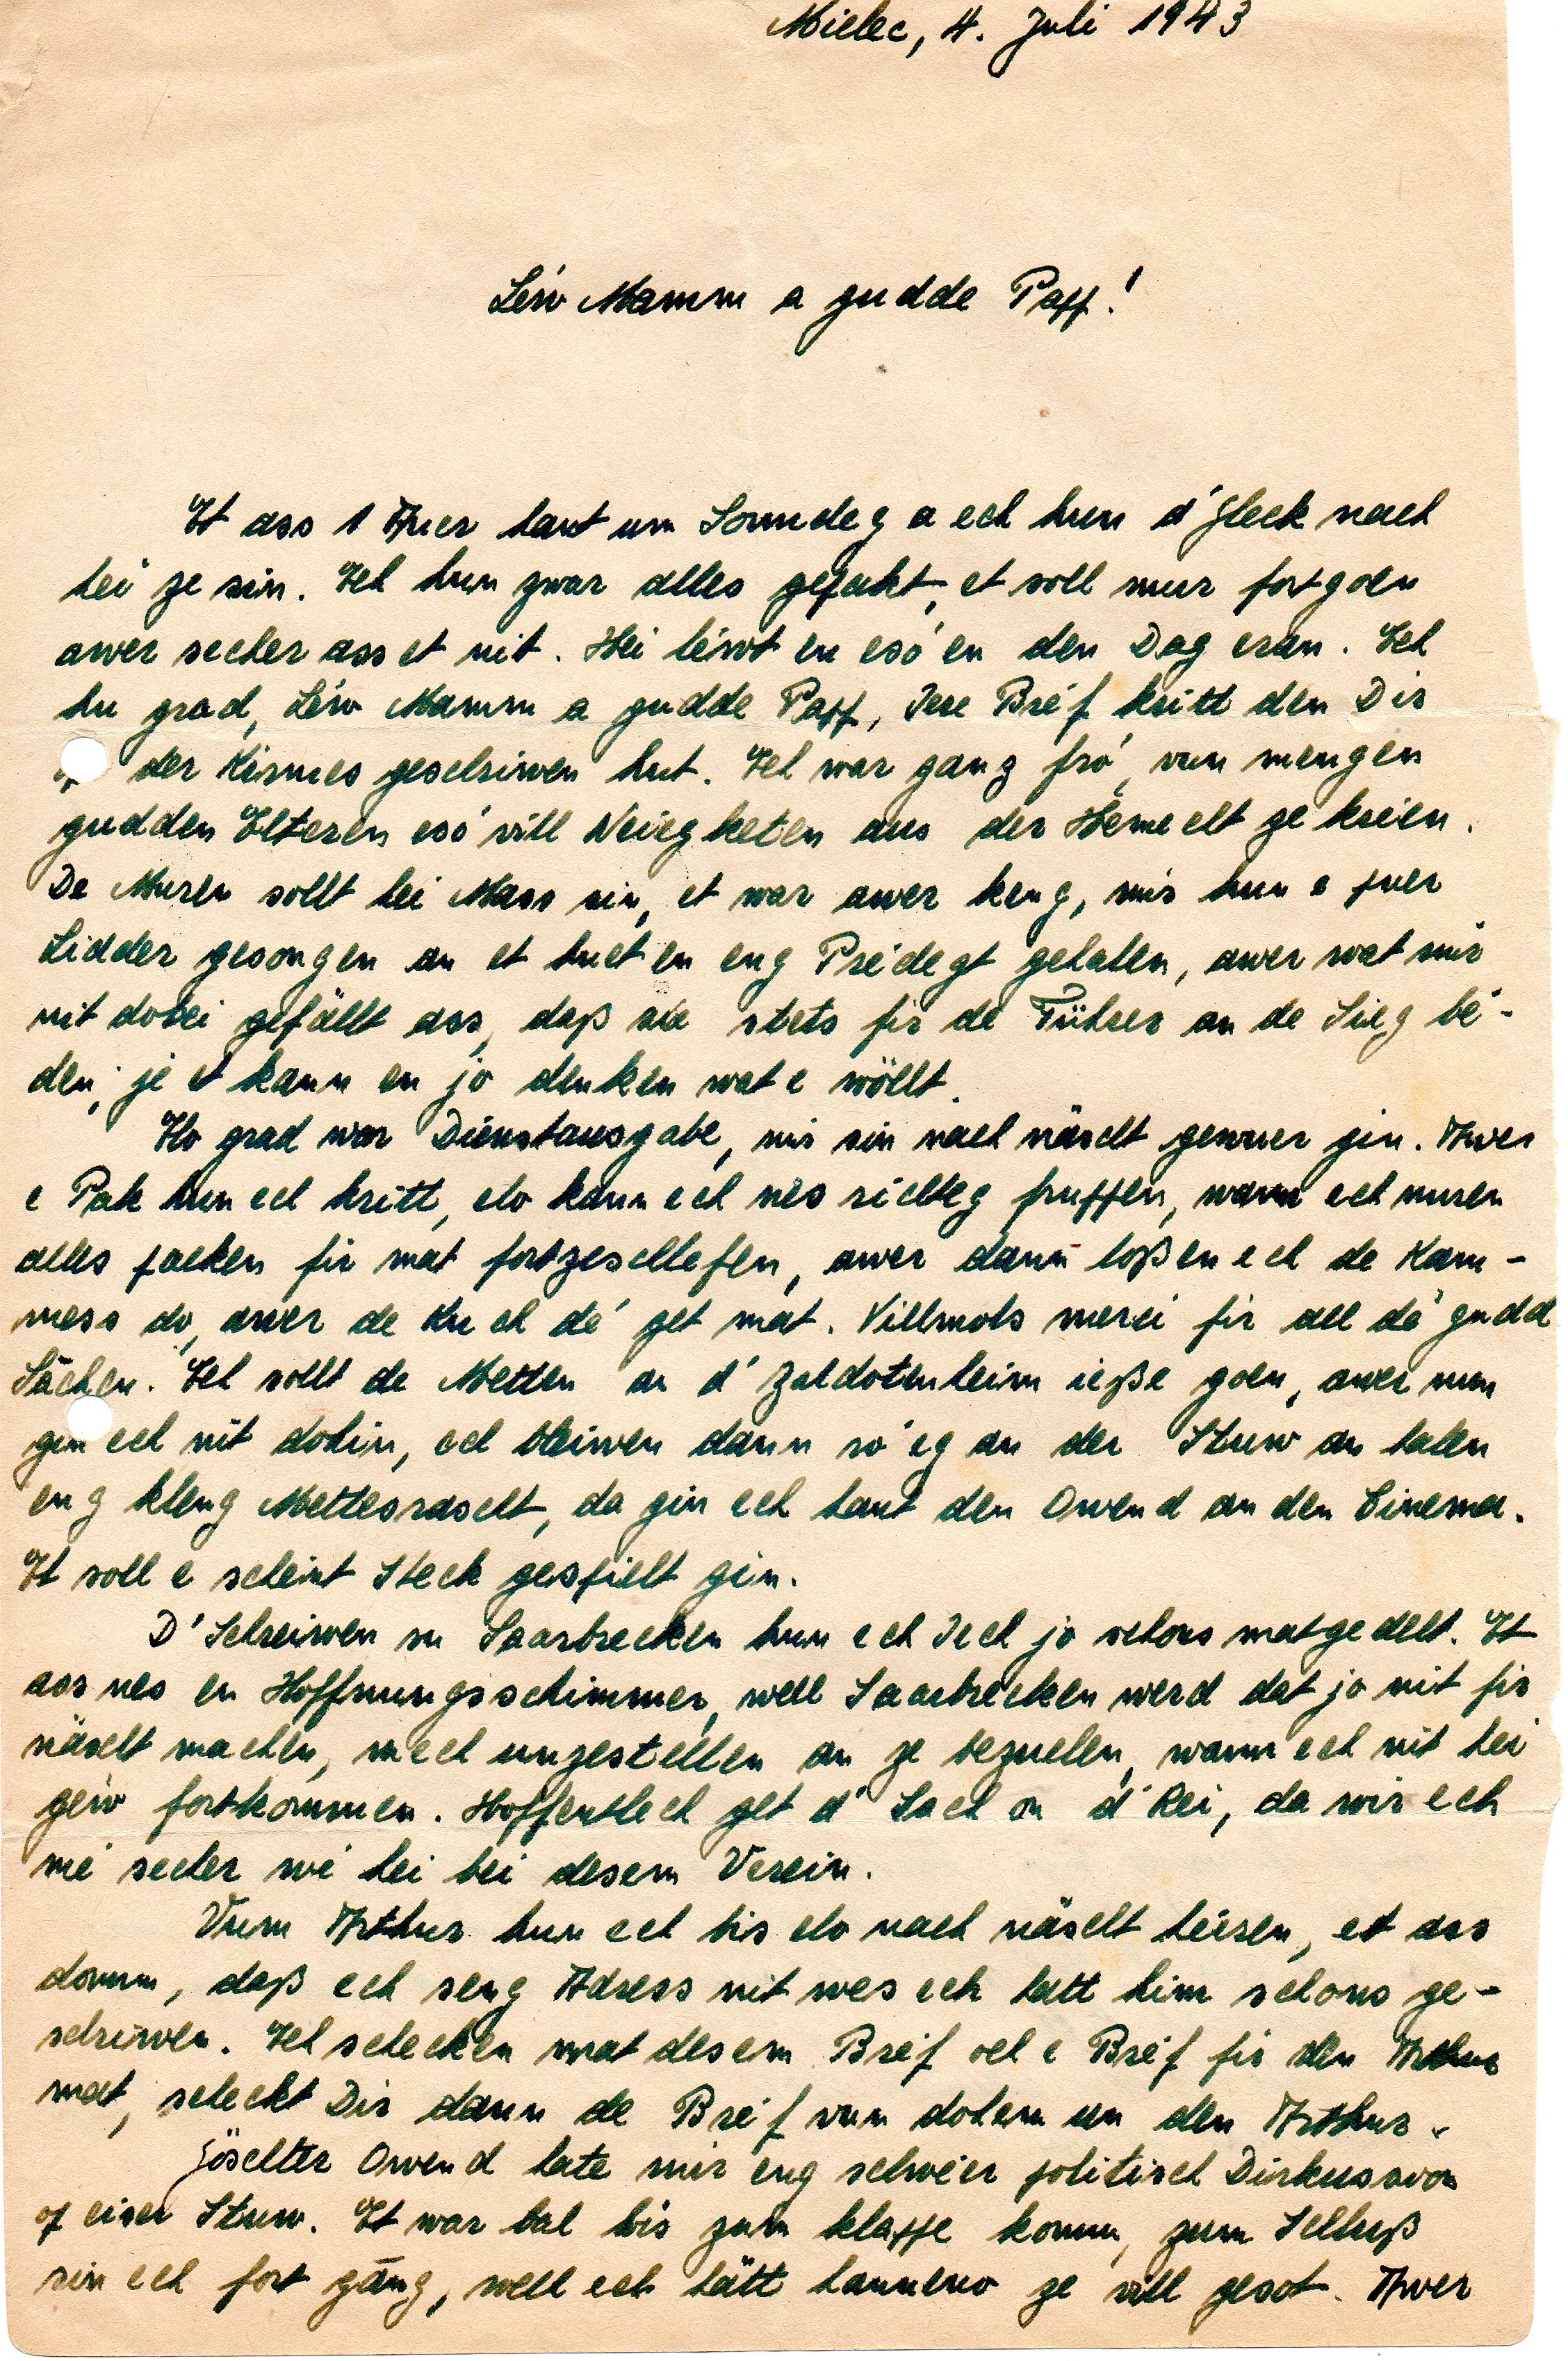 Mielec, 4. Juli 1943
Léiw Mamm a gudde Papp!
Et ass 1 Auer haut um Sonndeg a ech hun d'Gleck nach
hei ze sin. Ech hun zwar alles gepakt, et soll mur fortgoen
awer secher ass et nit. Hei léiwt en esó en den Dag eran. Ech
hu grad, Léiw Mamm a gudde Papp, Iere Bréf kritt den Dir
der Kirmes geschriwen hut. Ech war ganz fró, vun mengen
gudden Elteren esó vill Neiegketen aus der Hemecht ze kréien.
De Muren sollt hei Mass sin, et war awer keng, mir hun e puer
Lidder gesongen an et huet en eng Priedegt gehalen, awer wat mir
nit dobei gefällt ass, daß sie stets fir de Führer an de Sieg bé-
den, jé et kann en jo denken wat e wöllt.
Ho grad war Dienstausgabe, mir sin nach näscht gewuer gin. Awer
e Pak hun ech kritt, elo kann ech nes richteg puffen, wann ech muren
alles paeken fir mat fortzeschlefen, awer dann loßen ech de Kom-
mess do, awer de Kuch dé get mat. Villmols merci fir all dé gudd
Sächen. Ech sollt de Metten an d'Zaldotenheim ieße goen, awer nun
gin ech nit dohin, ech bleiwen dann ró'eg an der Stuw an halen
eng kleng Mettesrascht, da gin ech haut den Owend an den Cinema.
Et soll e scheint Steck gespielt gin.
D'Schreiwen vu Saarbrecken hun ech Iech jo schons matgedelt. Et
ass nes en Hoffnungsschimmer, well Saarbrecken werd dat jo nit fir
näscht machen, mech unzestellen an ze bezuelen, wann ech nit hei
géiw fortkommen. Hoffentlech get d'Sach an d'Rei, da wir ech
mé secher wé hei bei desem Verein.
Vum Arthur hun ech bis elo nach näscht héieren, et ass
dorum, daß ech seng Adress nit wes ech hätt him schons ge-
schriwen. Ech schecken mat desem Bréf och e Bréf fir den Arthur
mat, scheckt Dir dann de Bréf vun dohem un den Arthur.
Göschter Owend hate mir eng schwéier politisch Diskussion
op eiser Stuw. Et war bal bis zum klappe komm, zum Schluß
sin ech fort gäng, well ech hätt hannerno ze vill gesot. Awer